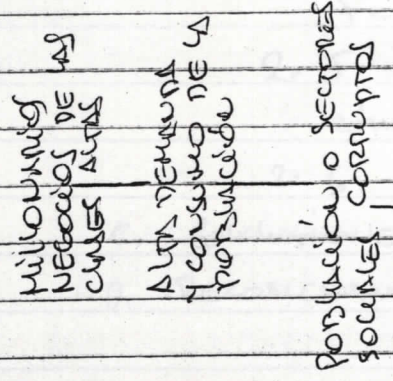 MILLONARIOS
NEGOCIOS DE LAS
CLASES ALTAS
ALTA DEMANDA
Y CONSUMO DE LA
POBLACIÓN
POBLACIÓN O SECTORES
SOCIALES CORRUPTOS